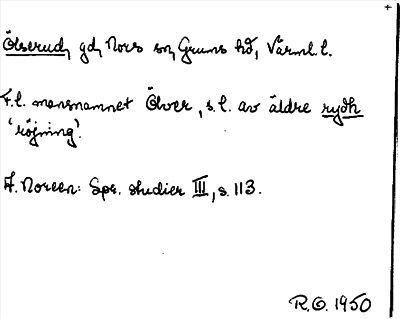 Ölserud, gd, Nors sn, Grums hd, Värml. l.
F.l. mansnamnet Ölver, s.l. av äldre rydh
'röjning'.
A. Noreen: Spr. studier III, s. 113.
R.O. 1950